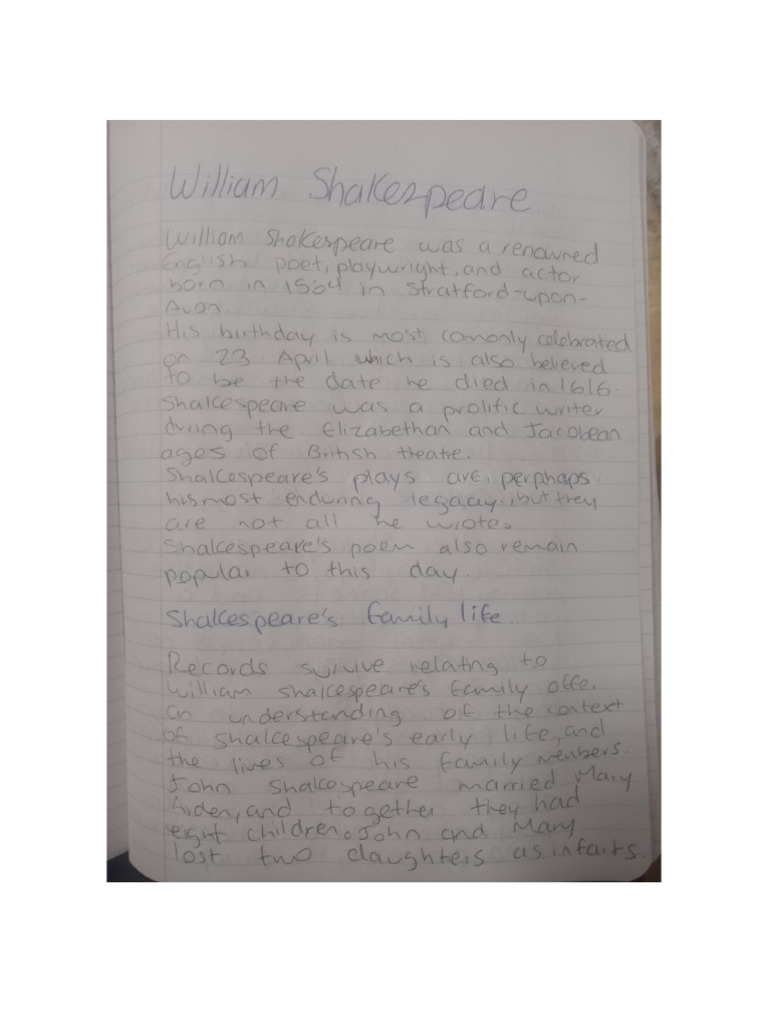 William Shakespeare
William Shakespeare was a renowned
English poet, playwright, and actor
born in 1564 in Stratford-upon-
Avon.
His birthday is most comonly celebrated
on 23 April which is also believed
to be the date he died in 1616.
Shakespeare was a prolific writer
during the Elizabethan and Jacobean
ages of British theatre.
Shakespeare's plays are perphaps
his most enduring legacy, but they
are not all he wrote.
Shakespeare's poem also remain
popular to this day.
Shakespeare's family life.
Records survive relating to
William Shakespeare's family offer
an understanding of the context
of Shakespeare's early life, and
the lives of his family members.
John Shakespeare married Mary
Arden, and together they had
eight children. John and Mary
lost two daughters as infants.